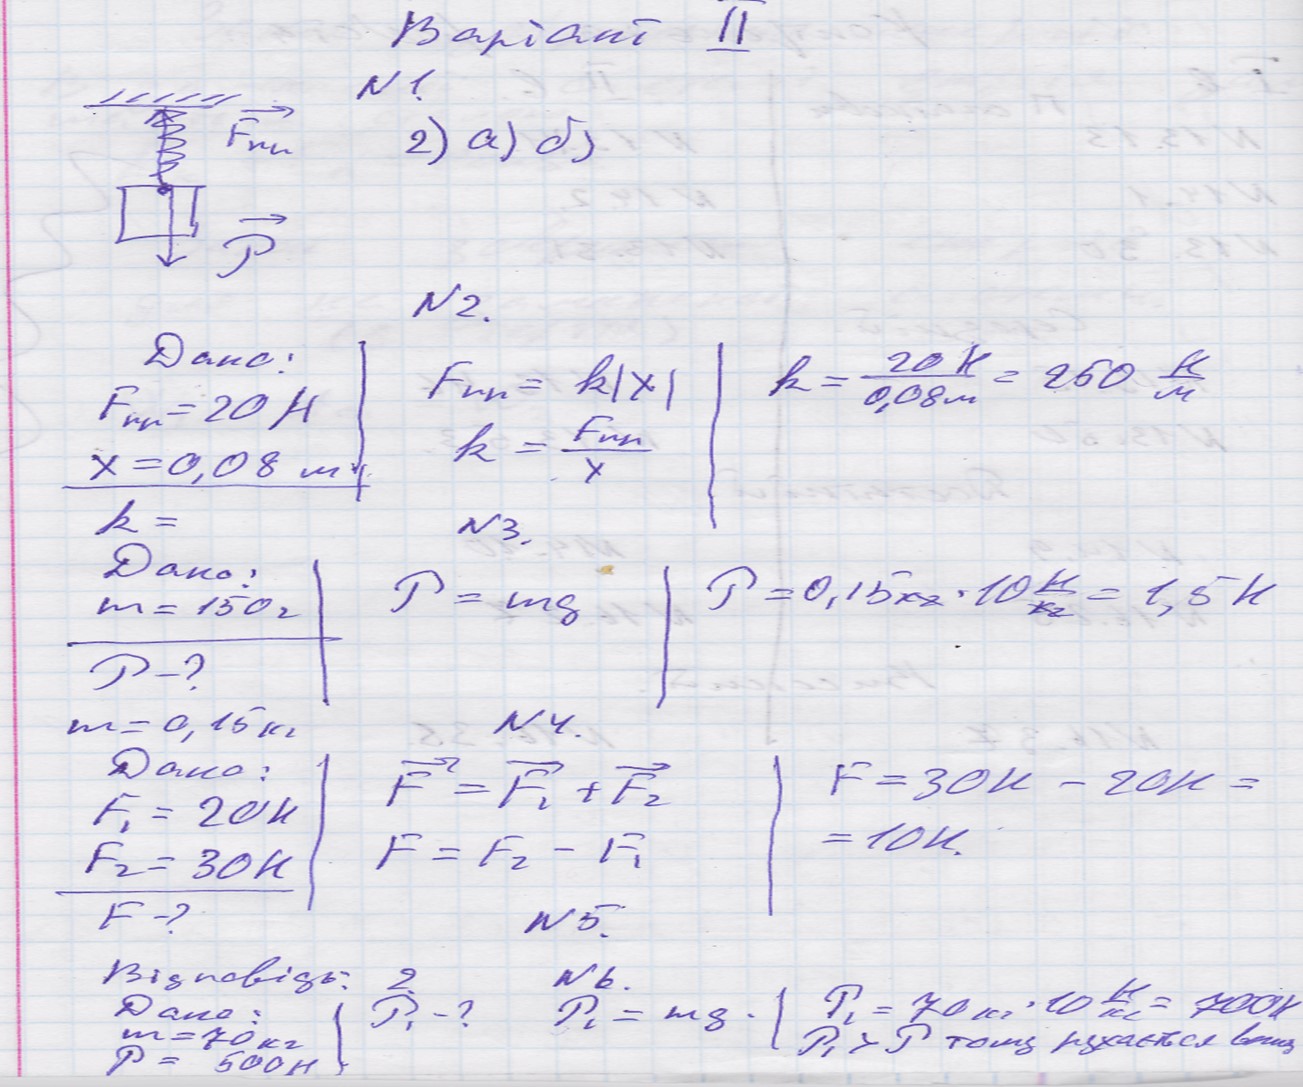 Варіант II
N1.
2) а) б)
Fпр
P
N2.
Дано:
Fпр = 20 Н
x = 0,08 м
k =
Fпр = k|x|
k = Fпр / x
k = 20 Н / 0,08 м = 250 Н/м
N3.
Дано:
m = 150 г
P - ?
m = 0,15 кг
P = mg
P = 0,15 кг · 10 Н/кг = 1,5 Н
N4.
Дано:
F₁ = 20 Н
F₂ = 30 Н
F - ?
F = F₁ + F₂
F = F₂ - F₁
F = 30 Н - 20 Н =
= 10 Н.
N5.
Відповідь: 2.
N6.
Дано:
m = 70 кг
P = 500 Н
P₁ - ?
P₁ = mg.
P₁ = 70 кг · 10 Н/кг = 700 Н
P₁ > P тому рухається вниз